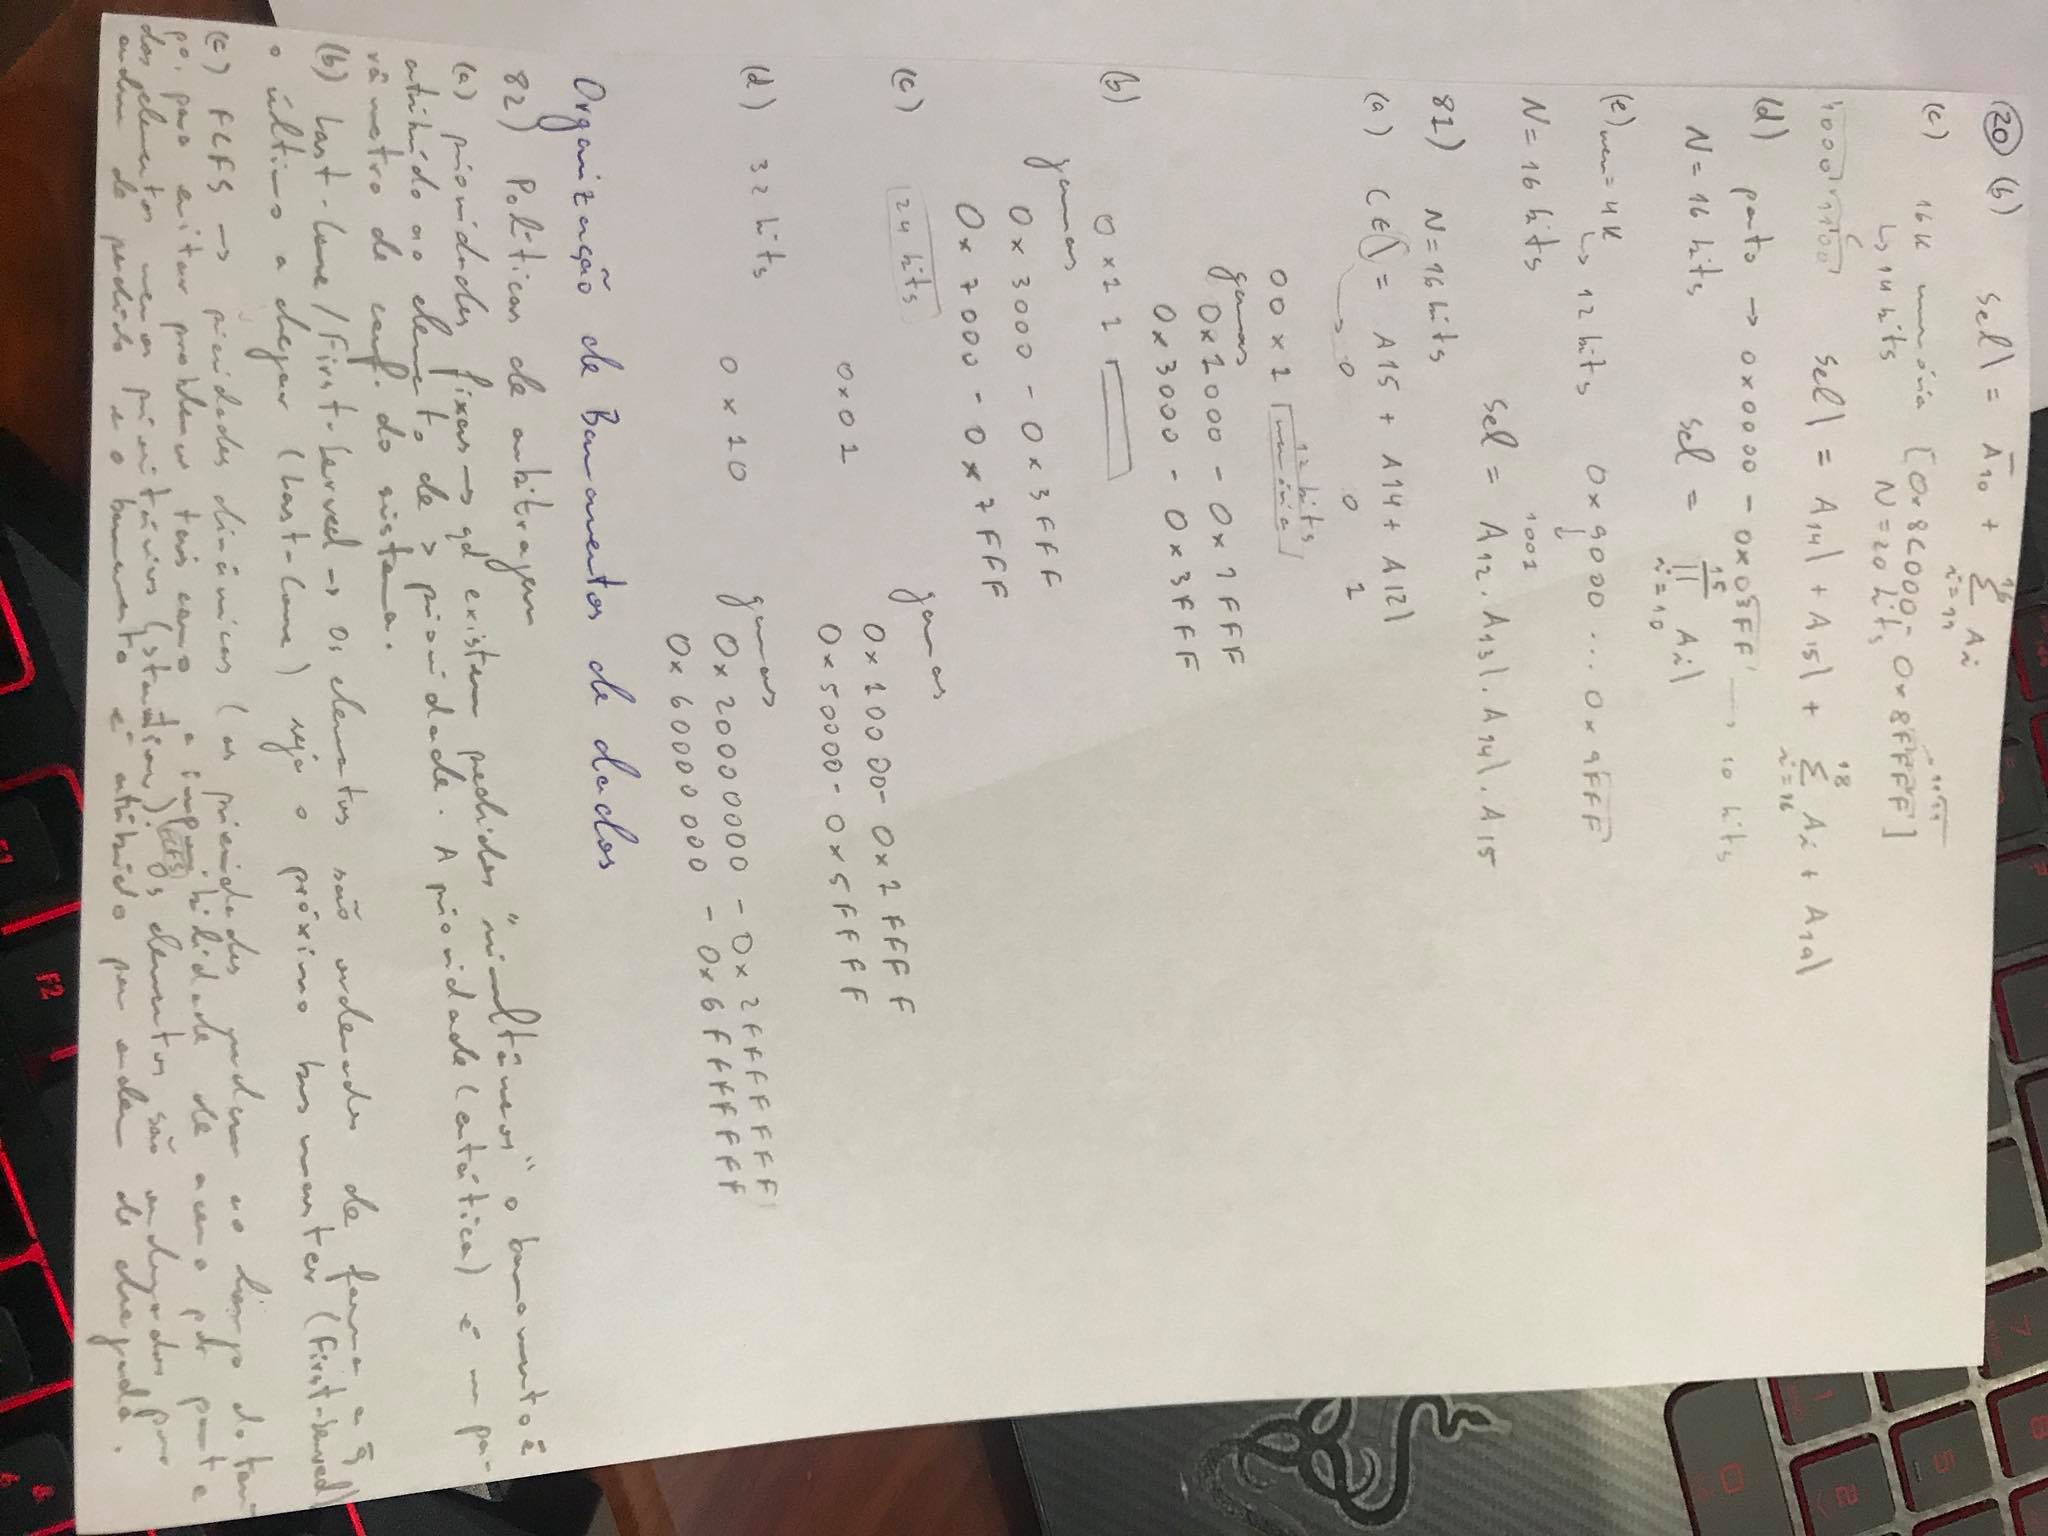 20 (b) sel\ = A̅10 + Σ i=11 16 Ai
(c) 16K memória [0x8C000 - 0x8FFFF]
↳ 14 bits N=20 bits
1000 1100 C sel\ = A14\ + A15\ + Σ i=16 18 Ai + A19\
(d) porto → 0x0000 - 0x03FF → 10 bits
N=16 bits sel = Π i=10 15 Ai\
(e) mem=4K ↳ 12 bits 0x9000 ... 0x9FFF
N=16 bits 1001
sel = A12 . A13\ . A14\ . A15
81) N=16 bits
(a) CE\ = A15 + A14 + A12\
→ 0 0 1
12 bits
00x1 memória
gamas
0x1000 - 0x1FFF
0x3000 - 0x3FFF
(b) 0x11
gamas
0x3000 - 0x3FFF
0x7000 - 0x7FFF
(c) 24 bits gamas
0x01 0x10000 - 0x1FFFF
0x50000 - 0x5FFFF
(d) 32 bits gamas
0x10 0x20000000 - 0x2FFFFFFF
0x60000000 - 0x6FFFFFFF
Organização de Barramentos de dados
82) Políticas de arbitragem
(a) prioridades fixas → qd existem pedidos "simultâneos" o barramento é
atribuído ao elemento de > prioridade. A prioridade (estática) é um pa-
râmetro de conf. do sistema.
(b) Last-Come/First-Served → Os elementos são ordenados de forma a q̃
o último a chegar (Last-Come) seja o próximo bus master (First-Served)
(c) FCFS → prioridades dinâmicas (as prioridades mudam ao longo do tem
po, para evitar problemas tais como a impossibilidade de acesso por parte
dos elementos menos prioritários (starvation). FCFS Os elementos são ordenados por
ordem de pedido e o barramento é atribuído por ordem de chegada.
F1
F2
7
8
5
1
2
0
6